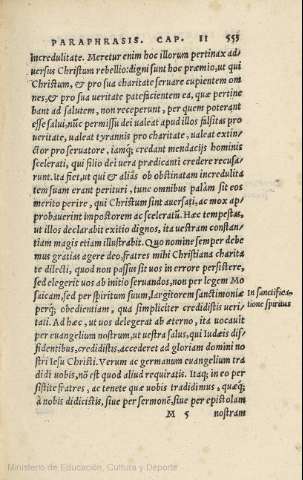 PARAPHRASIS. CAP. II 553
incredulitate. Meretur enim hoc illorum pertinax ad/
uersus Christum rebellio: digni sunt hoc præmio, ut qui
Christum, & pro sua charitate seruare cupientem om
nes, & pro sua ueritate patefacientem ea, quæ pertine
bant ad salutem, non receperunt, per quem poterant
esse salui, nūc permissu dei ualeat apud illos falsitas pro
ueritate, ualeat tyrannis pro charitate, ualeat extin/
ctor pro seruatore, iamq́; credant mendacijs hominis
scelerati, qui filio dei uera prædicanti credere recusa/
runt. Ita fiet, ut qui & aliâs ob obstinatam incredulita
tem suam erant perituri, tunc omnibus palàm sit eos
merito perire, qui Christum sint auersati, ac mox ap/
probauerint impostorem ac sceleratū. Hæc tempestas,
ut illos declarabit exitio dignos, ita uestram constan/
tiam magis etiam illustrabit. Quo nomine semper debe
mus gratias agere deo, fratres mihi Christiana charita
te dilecti, quod non passus sit uos in errore persistere,
sed elegerit uos ab initio seruandos, non per legem Mo
saicam, sed per spiritum suum, largitorem sanctimoniæ
In sanctifica/
tione spiritus
perq́; obedientiam, qua simpliciter credidistis ueri/
tati. Ad hæc, ut uos delegerat ab æterno, ita uocauit
per euangelium nostrum, ut uestra salus, qui Iudæis dif
fidentibus, credidistis, accederet ad gloriam domini no
stri Iesu Christi. Verum ac germanum euangelium tra
didi uobis, nō est quod aliud requiratis. Itaq; in eo per
sistite fratres, ac tenete quæ uobis tradidimus, quæq́;
à nobis didicistis, siue per sermonē, siue per epistolam
M 5 nostram
Ministerio de Educación, Cultura y Deporte